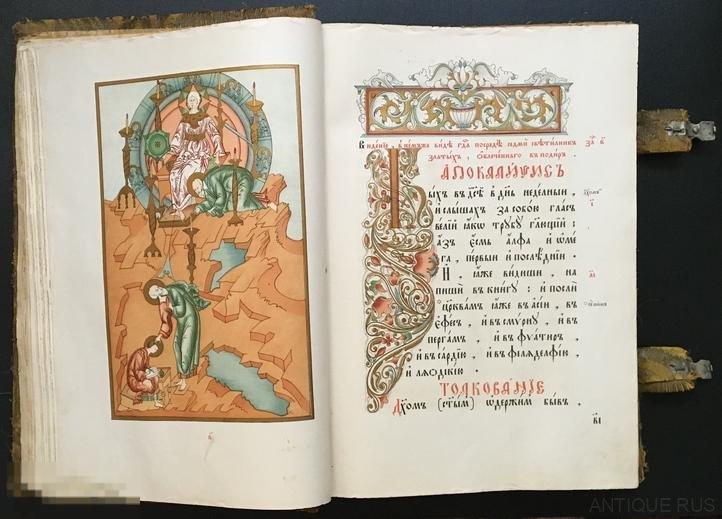 Видѣнїе , в҆ немъже видѣ гдⷭ҇а посредѣ седмѝ свѣтилникъ
златыхъ , ѡ҆блеченнаго въ подиръ .
АПОКАЛИѰИСЪ
Быхъ въ дс҃ѣ в҆ днь недѣлныи ,
и҆ слышахъ за собою гласъ
велїй ꙗ҆кѡ трубу гл҃ющїй :
а҆зъ є҆смь а҆лфа и҆ ѡ҆ме
га , первыи и҆ послѣднїи .
И҆ ꙗ҆же видиши , на
пиши въ книгу : и҆ посли
црквамъ ꙗ҆же въ а҆сїи , въ
є҆фесъ , и҆ въ смѵрну , и҆ въ
пергамъ , и҆ въ фѵатиръ ,
и҆ въ сардїю , и҆ въ фїладелфїю ,
и҆ лаѡдикїю .
ТОЛКОВАНЇЕ
Дх҃омъ (ст҃ымъ) ѡ҆держим бывъ .
ANTIQUE RUS